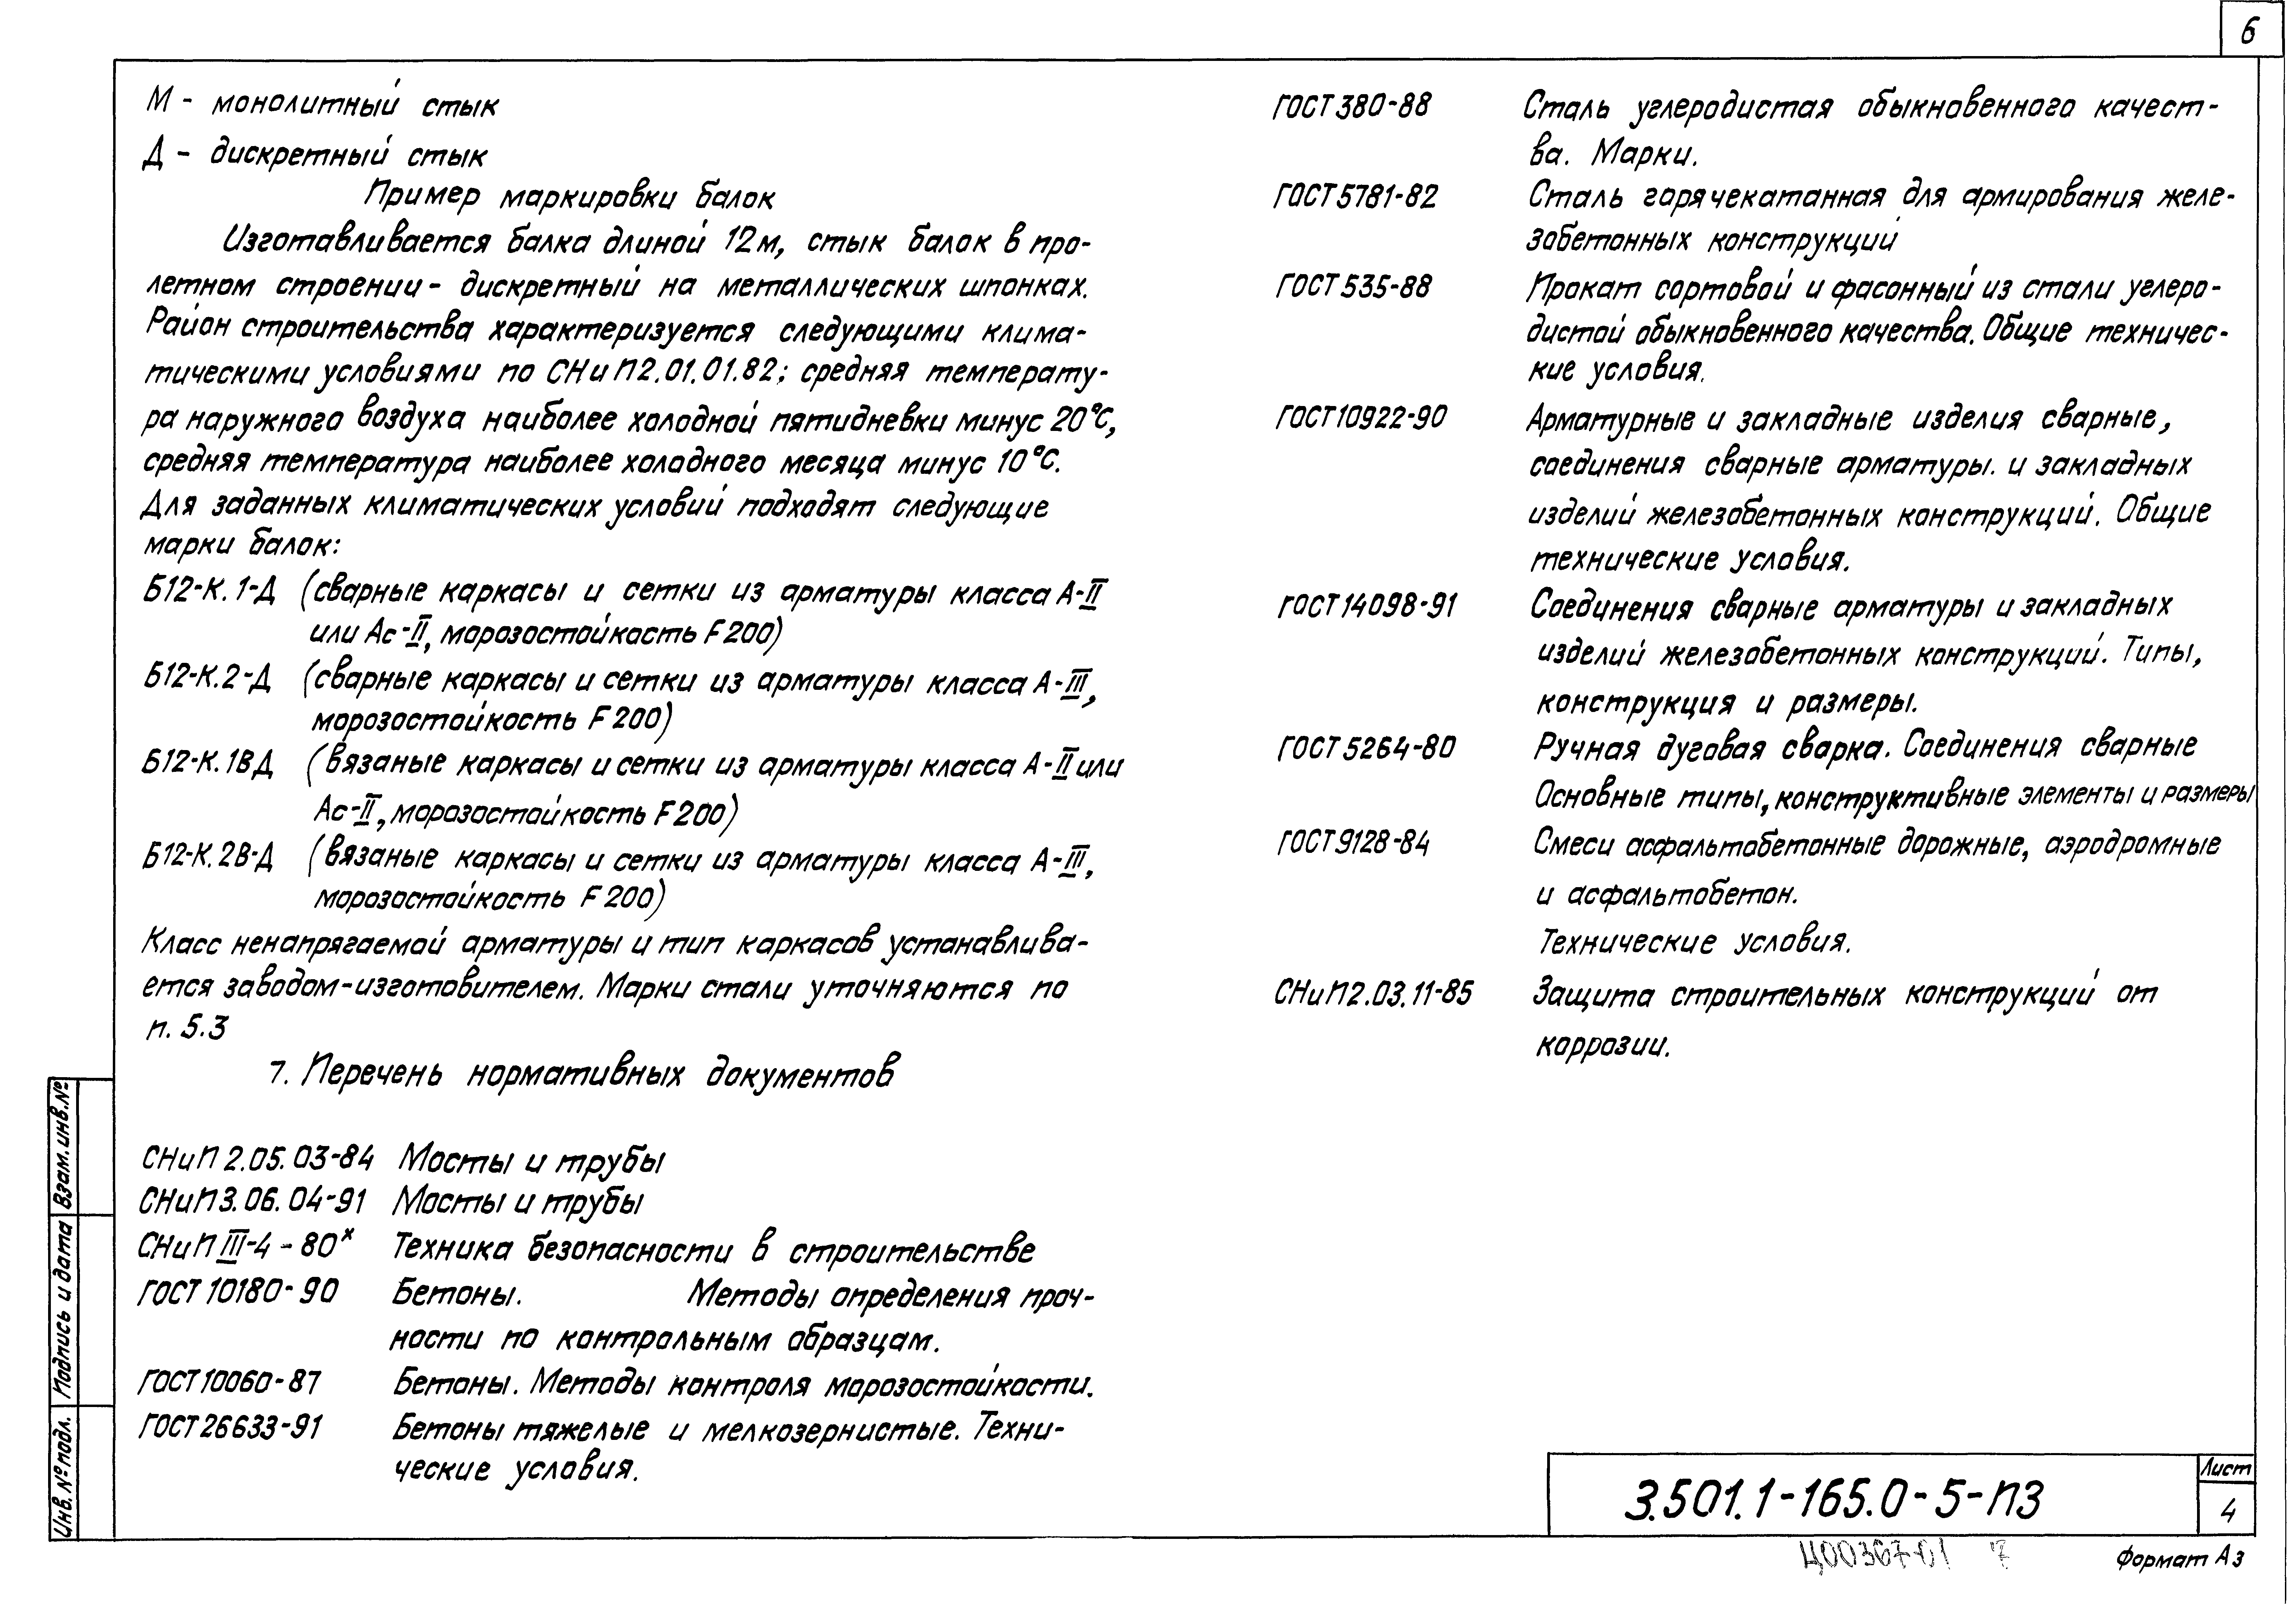 6
М - монолитный стык
Д - дискретный стык
Пример маркировки балок
Изготавливается балка длиной 12м, стык балок в про-
летном строении - дискретный на металлических шпонках.
Район строительства характеризуется следующими клима-
тическими условиями по СНиП2.01.01.82; средняя температу-
ра наружного воздуха наиболее холодной пятидневки минус 20°С,
средняя температура наиболее холодного месяца минус 10°С.
Для заданных климатических условий подходят следующие
марки балок:
Б12-К.1-Д (сварные каркасы и сетки из арматуры класса А-II
или Ас-II, морозостойкость F200)
Б12-К.2-Д (сварные каркасы и сетки из арматуры класса А-III,
морозостойкость F200)
Б12-К.1ВД (вязаные каркасы и сетки из арматуры класса А-II или
Ас-II, морозостойкость F200)
Б12-К.2В-Д (вязаные каркасы и сетки из арматуры класса А-III,
морозостойкость F200)
Класс ненапрягаемой арматуры и тип каркасов устанавлива-
ется заводом-изготовителем. Марки стали уточняются по
п. 5.3
7. Перечень нормативных документов
СНиП 2.05.03-84 Мосты и трубы
СНиП3.06.04-91 Мосты и трубы
СНиП III-4-80* Техника безопасности в строительстве
ГОСТ 10180-90 Бетоны. Методы определения проч-
ности по контрольным образцам.
ГОСТ10060-87 Бетоны. Методы контроля морозостойкости.
ГОСТ26633-91 Бетоны тяжелые и мелкозернистые. Техни-
ческие условия.
ГОСТ380-88 Сталь углеродистая обыкновенного качест-
ва. Марки.
ГОСТ5781-82 Сталь горячекатанная для армирования желе-
зобетонных конструкций
ГОСТ535-88 Прокат сортовой и фасонный из стали углеро-
дистой обыкновенного качества. Общие техничес-
кие условия.
ГОСТ10922-90 Арматурные и закладные изделия сварные,
соединения сварные арматуры. и закладных
изделий железобетонных конструкций. Общие
технические условия.
ГОСТ14098-91 Соединения сварные арматуры и закладных
изделий железобетонных конструкций. Типы,
конструкция и размеры.
ГОСТ5264-80 Ручная дуговая сварка. Соединения сварные
Основные типы, конструктивные элементы и размеры
ГОСТ9128-84 Смеси асфальтобетонные дорожные, аэродромные
и асфальтобетон.
Технические условия.
СНиП2.03.11-85 Защита строительных конструкций от
коррозии.
Взам. инв. №
Подпись и дата
Инв. № подл.
3.501.1-165.0-5-ПЗ
Лист
4
Ц00367-01 7
Формат А3